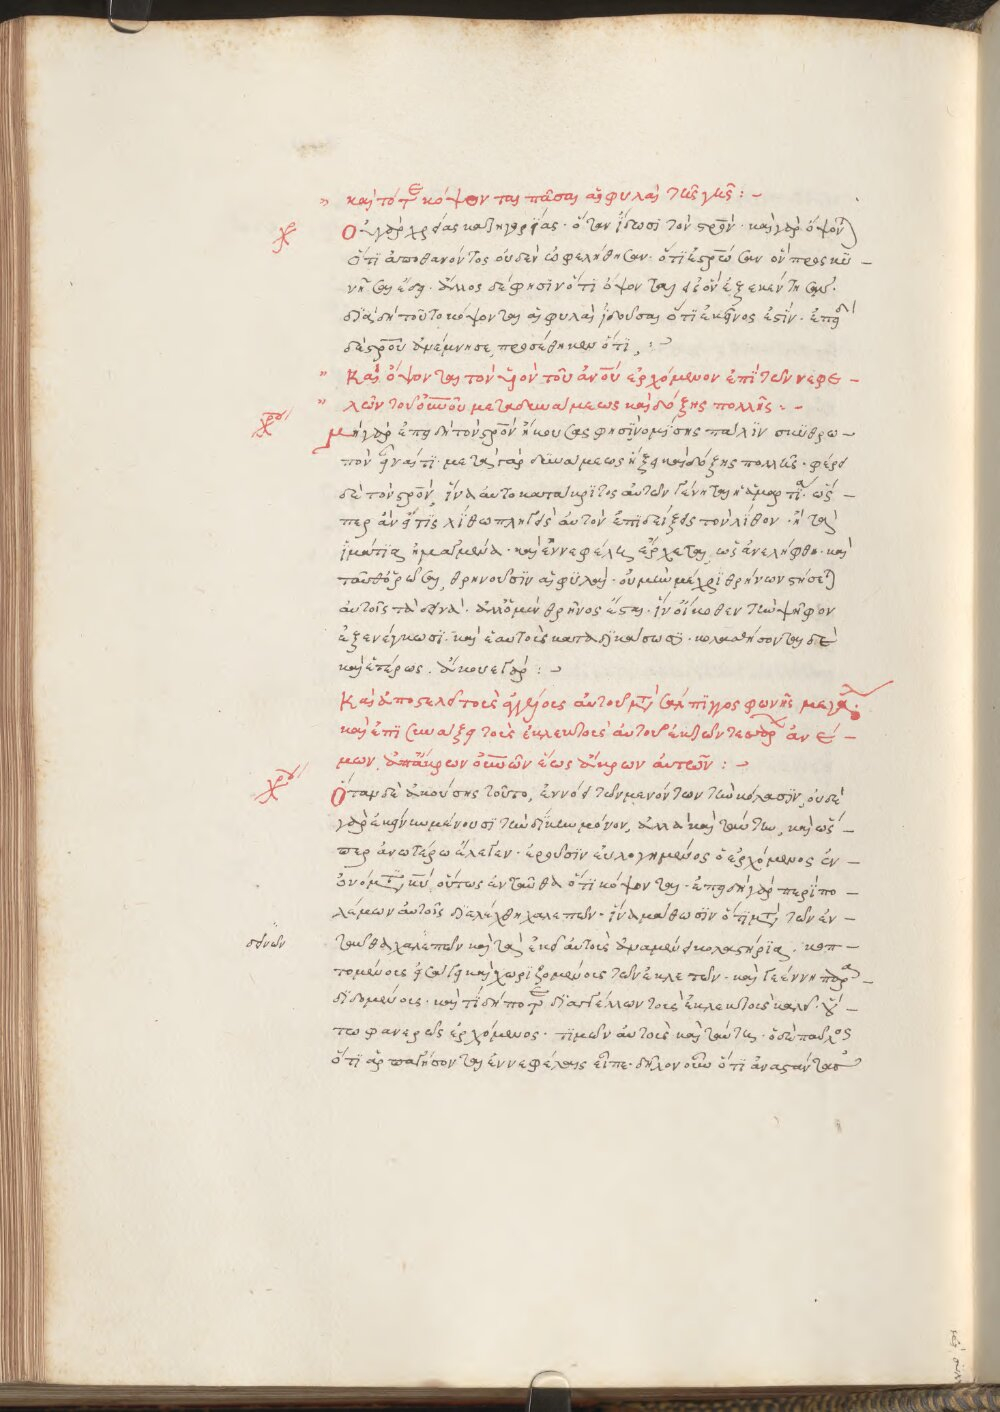 » καὶ τότε κόψονται πᾶσαι αἱ φυλαὶ τῆς γῆς : –
Οὐ γὰρ χρείας κατηγορίας · ὅταν ἴδωσι τὸν στρον · καὶ γὰρ ὄψον
ὅτι ἀποθανόντος οὐδὲν ὠφελήθησαν · ὅτι ἐστρωσαν ὃν προσκυ –
νῆσαι ἔδει · ἄλλος δέ φησιν ὅτι ὄψονται εἰς ὃν ἐξεκέντησαν ·
διὰ δὴ τοῦτο κόψονται αἱ φυλαὶ ἰδοῦσαι ὅτι ἐκεῖνος ἐστίν · ἐπειδὴ
δὲ στρου ἀνέμνησε, προσέθηκεν ὅτι
» Καὶ ὄψονται τὸν υἱὸν τοῦ ανου ἐρχόμενον ἐπὶ τῶν νεφε –
» λῶν τοῦ ουνου μετὰ δυνάμεως καὶ δόξης πολλῆς : –
Μὴ γὰρ ἐπειδὴ τὸν στρον ἤκουσας φησὶ νομίσῃς πάλιν σκυθρω –
πὸν εἶναί τι · μετὰ γὰρ δυνάμεως ἥξει καὶ δόξης πολλῆς · φέρει
δὲ τὸν στρον, ἵνα αὐτοκατάκριτος αὐτῶν γένηται ἡ ἁμαρτία · ὥσ –
περ ἂν εἴ τις λίθω πληγεὶς αὐτὸν ἐπιδείξει τὸν λίθον · ἢ τὰ
ἱμάτια ἡμαγμένα · καὶ ἐν νεφέλη ἔρχεται, ὡς ἀνελήφθη · καὶ
ταῦθ' ὁρῶσαι, θρηνοῦσιν αἱ φυλαί · οὐ μὴν μέχρι θρήνων στήσε
αὐτοῖς τὰ δεινά · ἀλλ' ὁ μὲν θρῆνος ἔσται · ἵν' οἴκοθεν τὴν ψῆφον
ἐξενέγκωσι · καὶ ἑαυτοὺς καταδικάσωσι · κολασθήσονται δὲ
καὶ ἑτέρως · ἄκουε γάρ : –
Καὶ ἀποστελεῖ τοὺς ἀγγέλους αὐτοῦ μετὰ σάλπιγγος φωνῆς μεγά ·
καὶ ἐπισυνάξει τοὺς ἐκλεκτοὺς αὐτοῦ ἐκ τῶν τεσσάρ ἀνέ –
μων ἀπ' ἄκρων ουνων ἕως ἄκρων αὐτῶν : –
Ὅταν δὲ ἀκούσῃς τοῦτο, ἐννόει τῶν μενόντων τὴν κόλασιν, οὐδὲ
γὰρ ἐκείνην μένουσι τὴν δίκην μόνον, ἀλλὰ καὶ ταύτην, καὶ ὥσ –
περ ἀνωτέρω ἔλεγεν · ἐροῦσιν εὐλογημένος ὁ ἐρχόμενος ἐν –
ὀνόματι κυ, οὕτως ἐνταῦθα ὅτι κόψονται · ἐπειδὴ γὰρ περὶ πο –
λέμων αὐτοῖς διελέχθη χαλεπῶν · ἵνα μάθωσιν ὅτι μετὰ τῶν ἐν –
δεινῶν ταῦθα χαλεπῶν καὶ τὰ ἐκεῖ αὐτοὺς ἀναμένει κολαστήρια · κοπ –
τομένους εἰσάγει καὶ χωριζομένους τῶν ἐκλεκτῶν · καὶ γεέννῃ παρα –
διδομένους · καὶ τί δήποτε δι' ἀγγέλων τοὺς ἐκλεκτοὺς καλεῖ · οὕ –
τω φανερῶς ἐρχόμενος · τιμῶν αὐτοὺς καὶ ταύτῃ · ὁ δὲ παῦλος
ὅτι ἁρπαγήσονται ἐν νεφέλαις εἶπε · δῆλον οὖν ὅτι ἀναστάντας